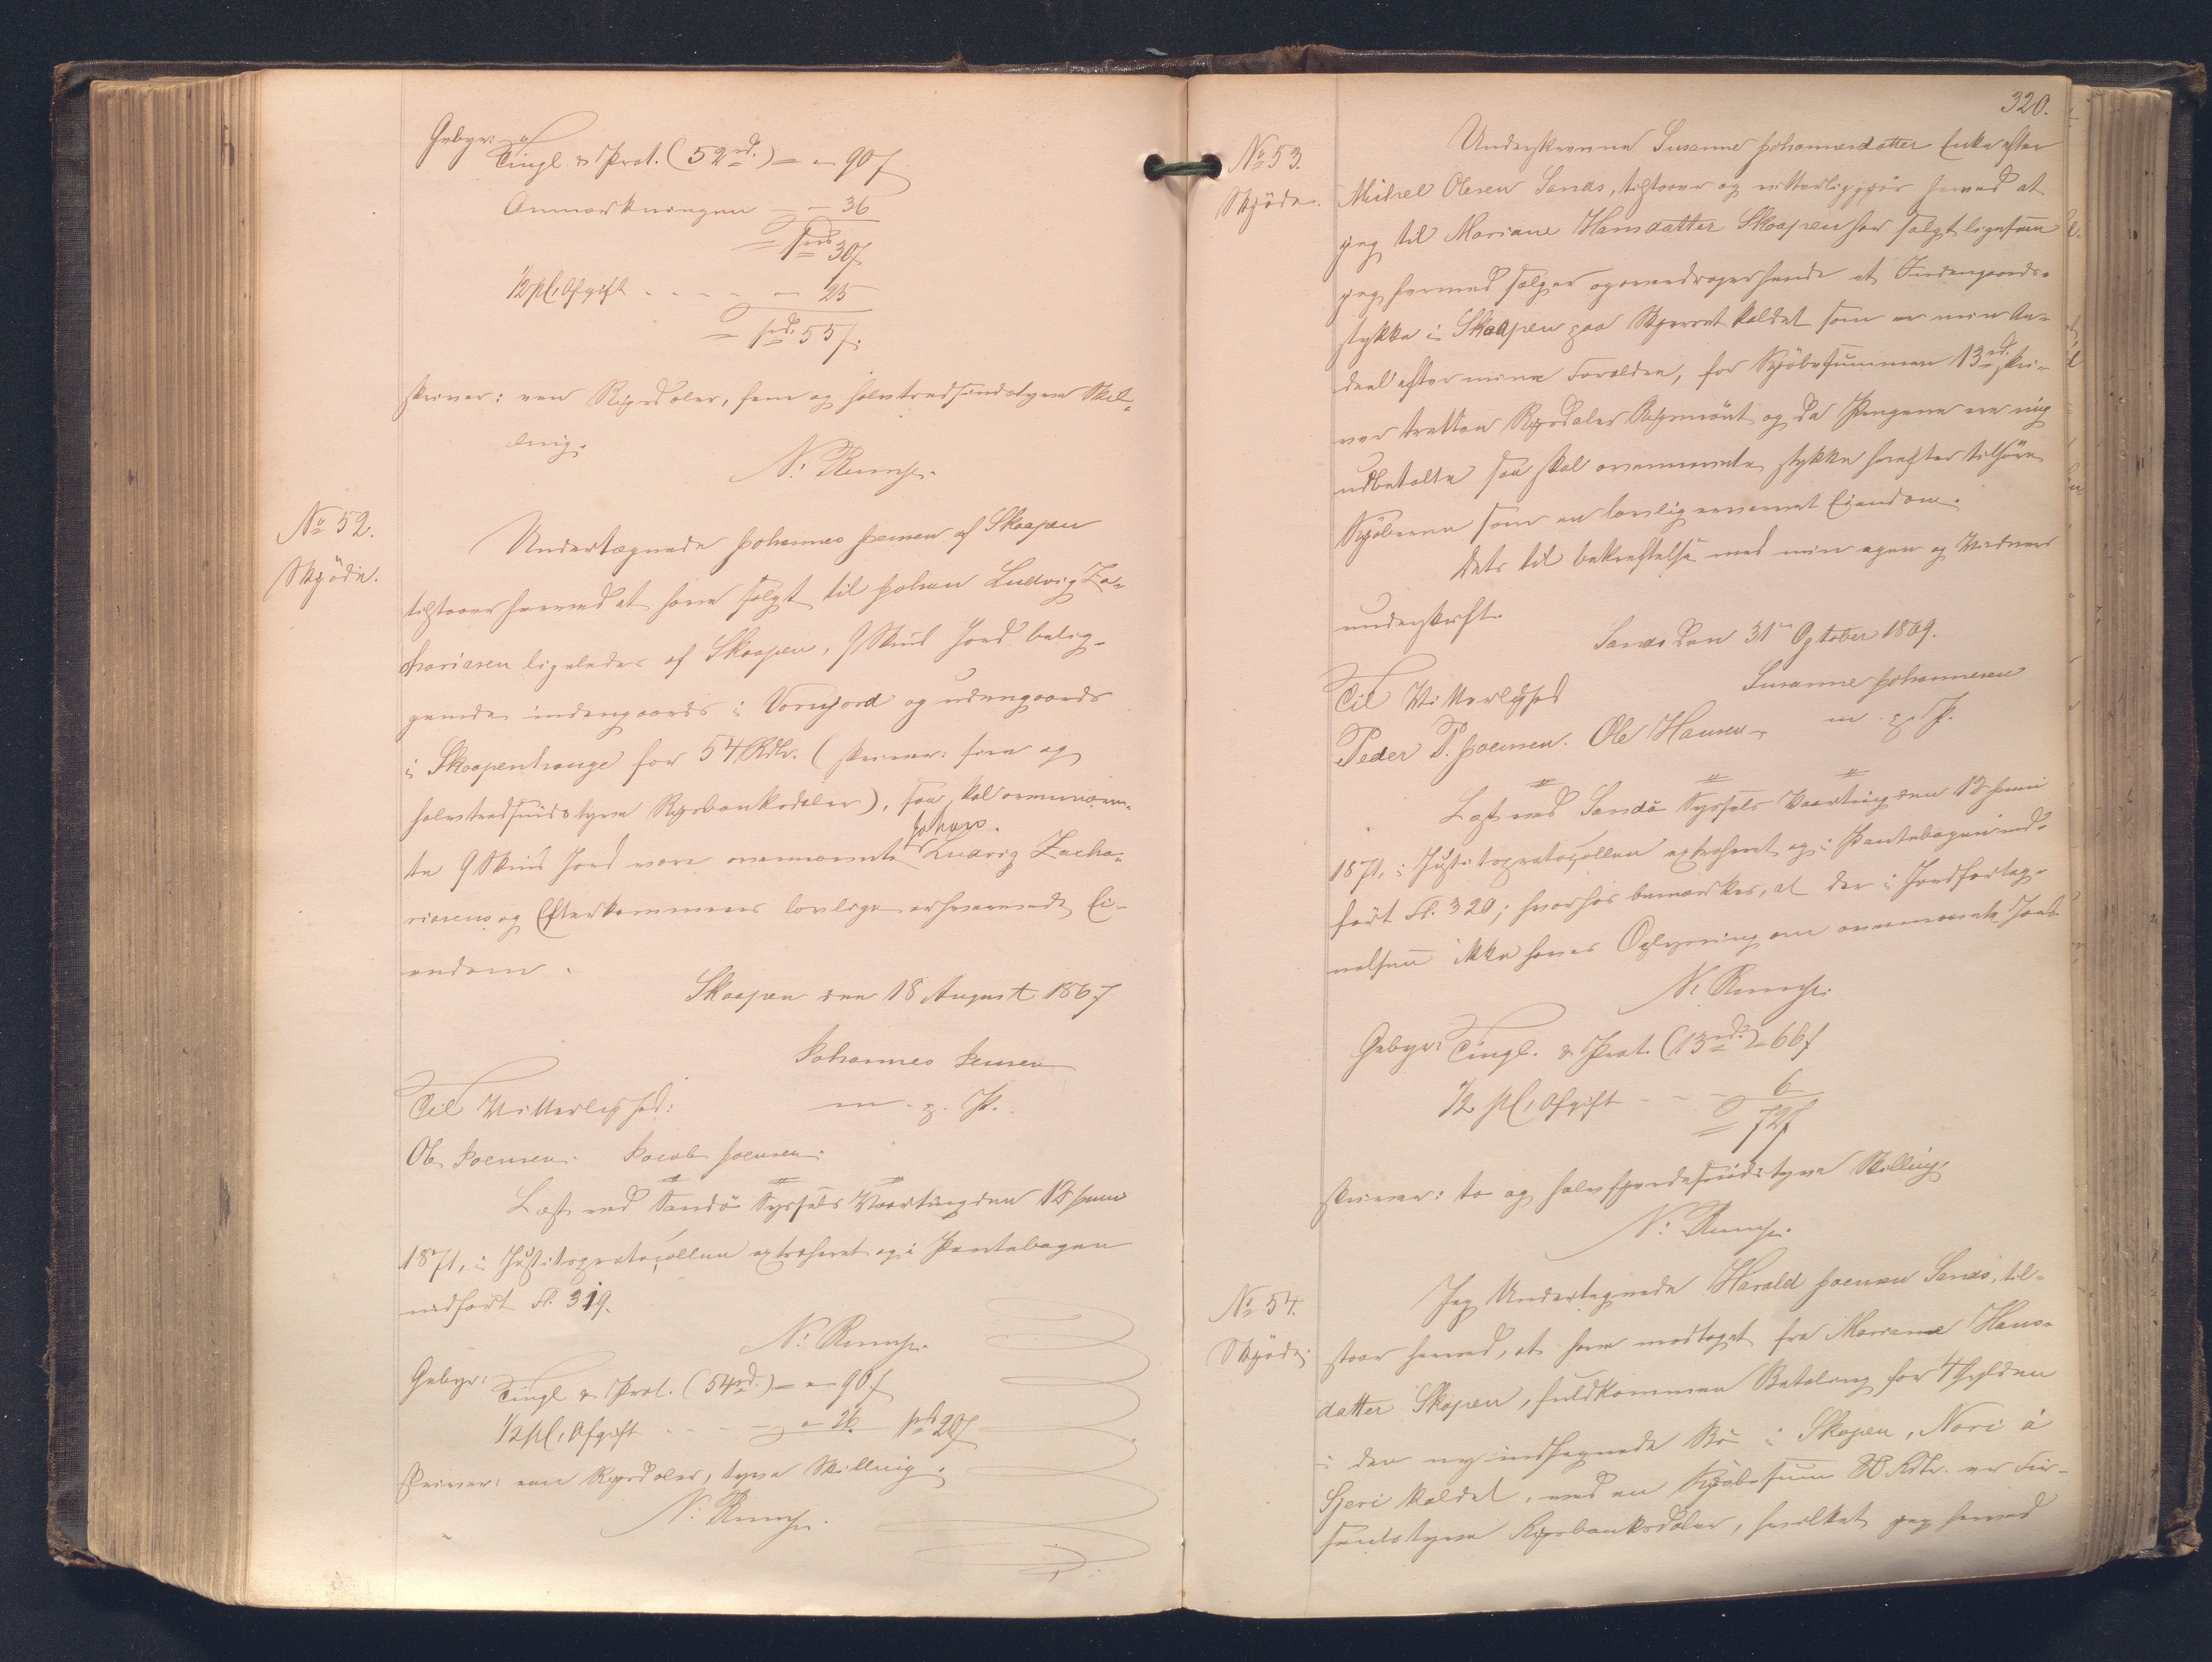 Gebyr:
Tingl. & Prot. (52 rd.) = " 90 ſ
Anmærkningen — " 36
1 rd 30 ſ
½ pCt. Afgift - - - - " 25
1 rd. 55 ſ.
skriver: een Rigsdaler, fem og halvtredsindstyve Skil-
ling.
N. Rump.
No 52.
Skjøde.
Undertegnede Johannes Jensen af Skaapen
tilstaaer herved at have solgt til Johan Ludvig Za-
chariasen ligeledes af Skaapen, 9 Skind Jord belig-
gende indengaards i Vorujord og udengaards
i Skaapenhauge for 54 Rdlr. (skriver: fire og
halvtredsindstyve Rigsbanksdaler), saa skal ovennævn-
te 9 Skind Jord være ovennævnte Johans Ludvig Zacha-
riasens og Efterkommeres lovlige erhvervede Ei-
endom.
Skaapen den 18 August 1867
Johannes Jensen
m. p. P.
Til Vitterlighed:
Ole Joensen. Jacob Joensen.
Læst ved Sandø Syssels Vaarting den 12 Juni
1871, i Justitsprotocollen extraheret og i Pantebogen
indført Fl. 319.
N. Rump.
Gebyr:
Tingl & Prot. (54 rd.) = " 90 ſ
½ pCt. Afgift - - - " 26. 1 rd 20 ſ
Skriver: een Rigsdaler, tyve Skilling.
N. Rump.
320.
No 53.
Skjøde.
Underskrevne Susanne Johannesdatter Enke efter
Michel Olesen Sands, tilstaaer og vitterliggjør herved at
jeg til Mariane Hansdatter Skaapen har solgt ligesom
jeg hermed sælger og overdrager hende et Indengaards-
stykke i Skaapen paa Skjerret kaldet som er min An-
deel efter mine Forældre, for Kjøbesummen 13 rd. skri-
ver tretten Rigsdaler Rigsmønt og da Pengene ere mig
udbetalte saa skal ovennævnte stykke herefter tilhøre
Kjøberen som en lovlig erhvervet Eiendom.
Dets til bekræftelse med min egen og Vidners
underskrift.
Sands den 31te Oktober 1869.
Til Vitterlighed
Susanne Johannesen
Peder P. Joensen. Ole Hansen
m. p. P.
Læst ved Sandø Syssels Vaarting den 12 Juni
1871, i Justitsprotocollen extraheret og i Pantebogen ind-
ført Fl. 320; hvorhos bemærkes, at der i Jordforteg-
nelsen ikke haves Oplysning om ovennævnte Jord.
N. Rump.
Gebyr: Tingl. & Prot. (13 rd.) = 66 ſ
½ pCt. Afgift - - - 6
72 ſ
skriver: to og halvfjerdsindstyve Skilling.
N. Rump.
No 54.
Skjøde.
Jeg Undertegnede Harald Joensen Sands, til-
staar herved, at have modtaget fra Mariane Hans-
datter Skapen, fuldkommen Betaling for 4 Gylden
i den ny indhegnede Bø i Skapen, Nori á
Gjeri kaldet, med en Kjøbesum 80 Rdlr. er Fir-
sindstyve Rigsbanksdaler, hvilket jeg herved